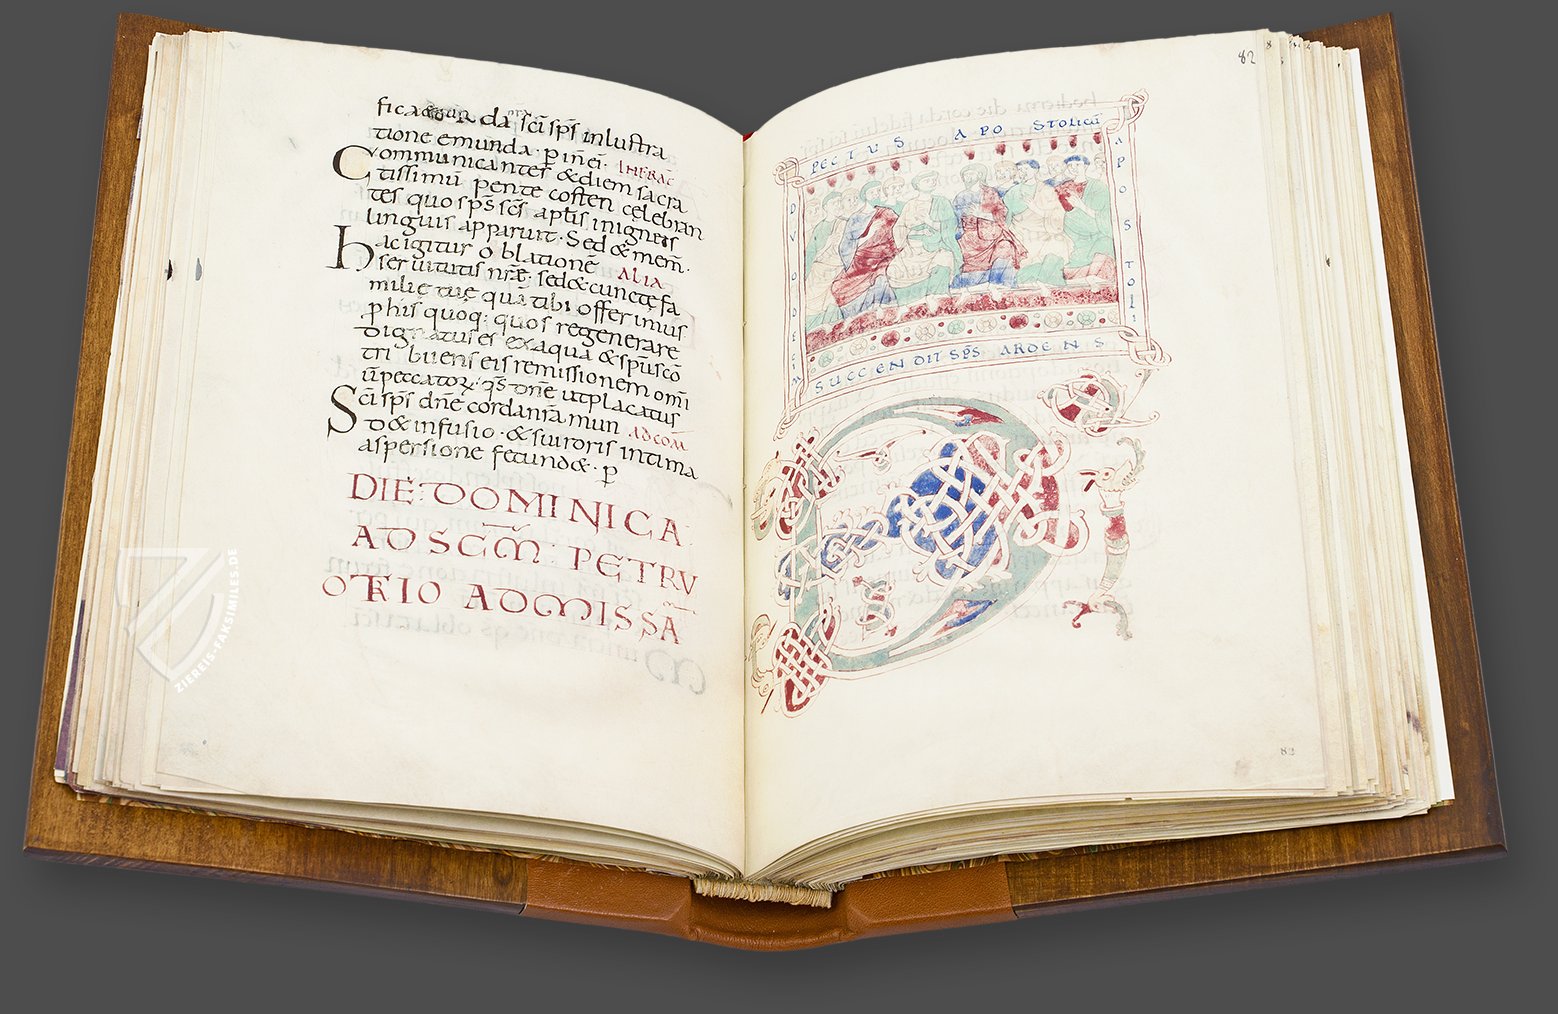 ficatio da sc̄i sp̄s inlustra
tione emunda · p̄ in̄ei · INFRAC̄T
Communicantes & diem sacra
tissimū pente costen celebran
tes quo sp̄s sc̄s aptis inigneis
linguis apparuit · Sed & mem̄ ·
hac igitur oblationē ALIA
seruitutis nr̄ē · sed & cunctę fa
milię tuę quā tibi offerimus
p̄ his quoq; quos regenerare
dignatus es exaqua & sp̄uscō
tri buens eis remissionem omī
ū peccator̄ · qs̄ dn̄e utplacatus
Sc̄i sp̄s dn̄e corda nr̄a mun ADCOM̄
do& infusio · & suiroris intima
aspersione fecund& · p̄
DIĒ DOMINICA
AD SCM̄ : PETRV
OR̄IO ADMISSĀ
82
PECTUS APOSTOLICŪ
DVODECIM
APOSTOLI
SUCCENDIT SP̄S ARDENS
D
82
ZIEREIS-FAKSIMILES.DE